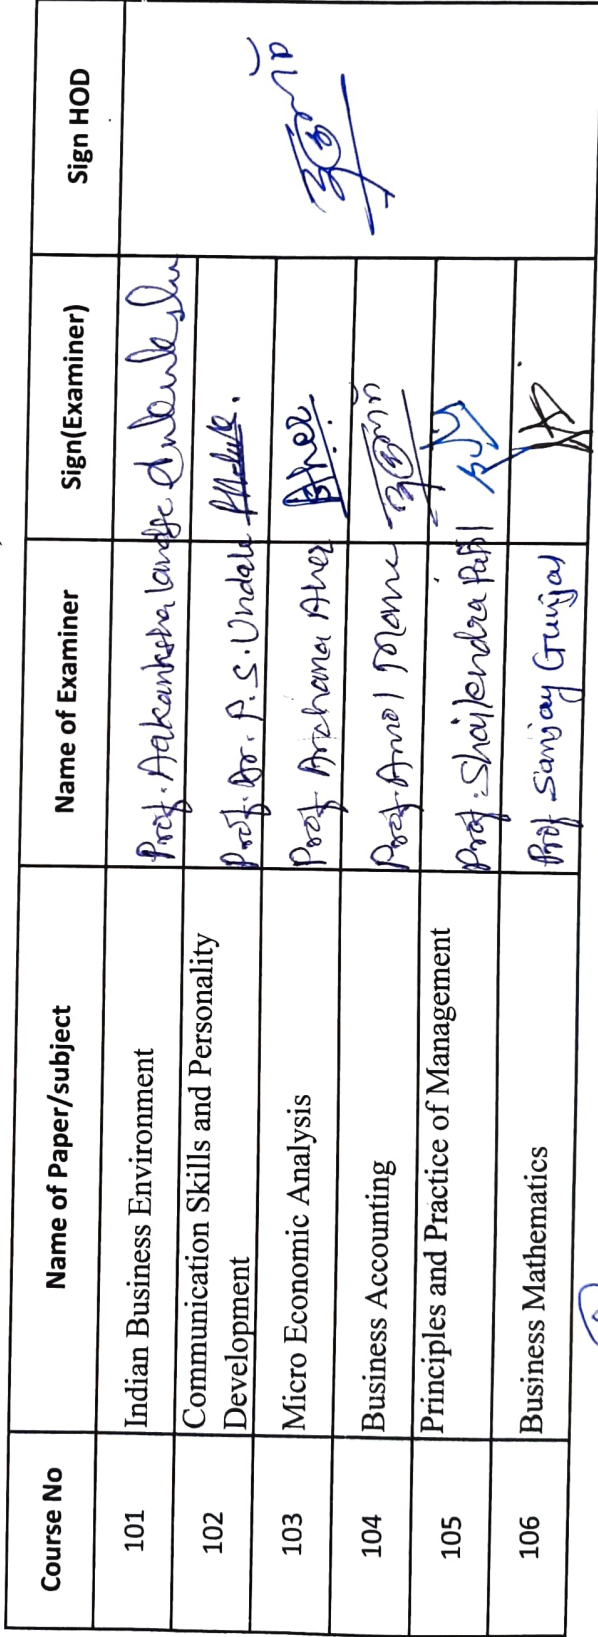 Course No Name of Paper/subject Name of Examiner Sign(Examiner) Sign HOD
101 Indian Business Environment Prof. Aakanksha Landge
102 Communication Skills and Personality Development Prof. Dr. P. S. Undale
103 Micro Economic Analysis Prof. Archana Aher Aher
104 Business Accounting Prof. Amol Mane
105 Principles and Practice of Management Prof. Shailendra Patil
106 Business Mathematics Prof Sanjay Gunjal